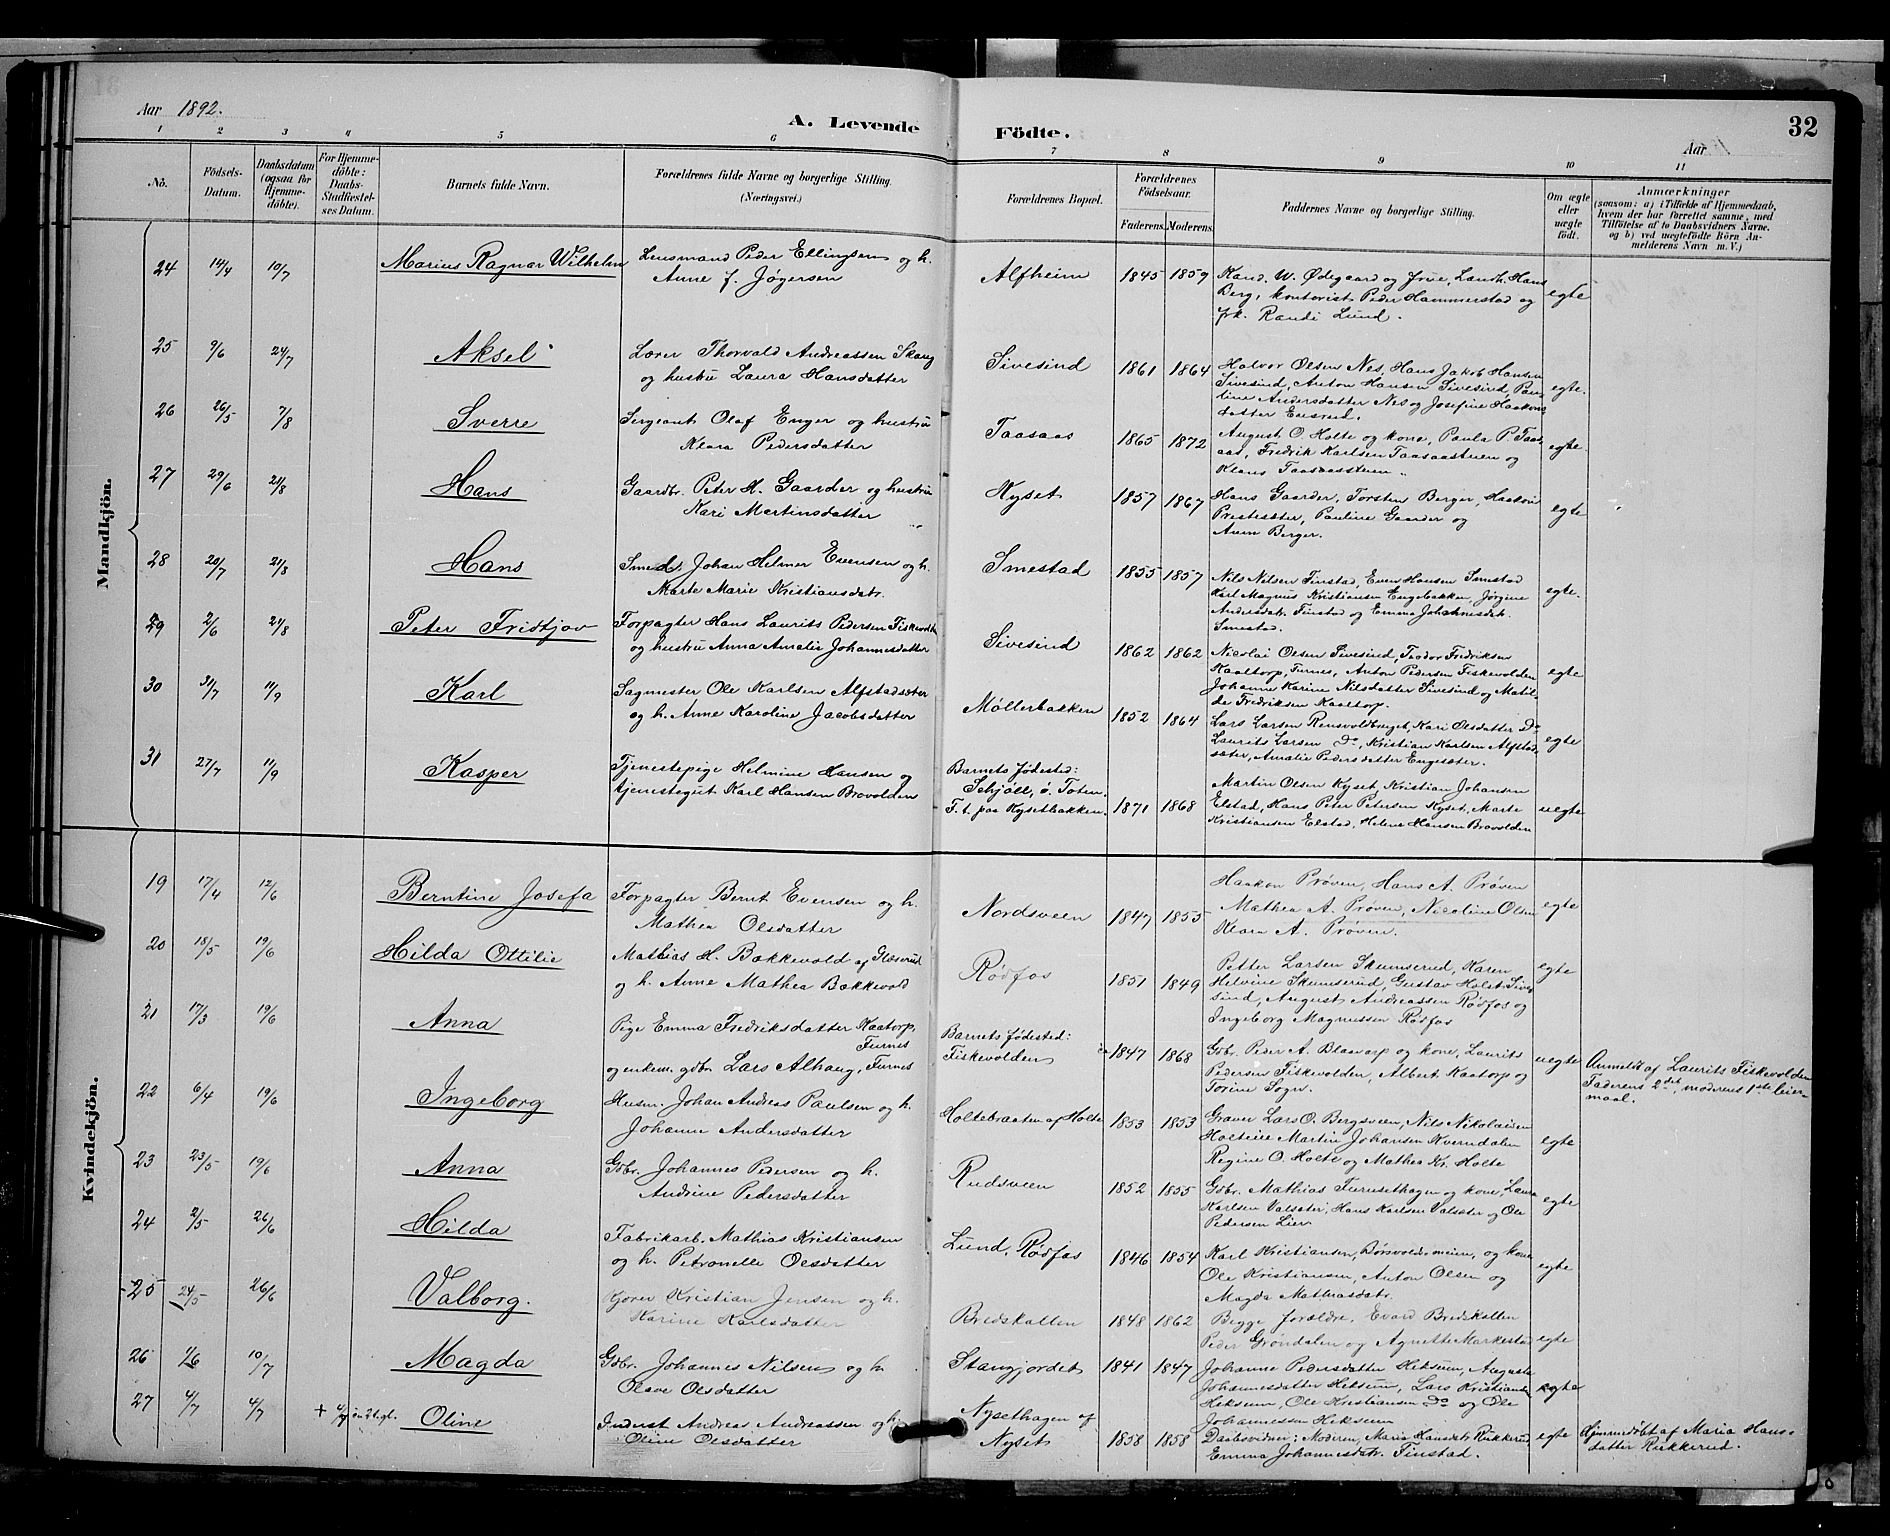 Aar 1892.
A. Levende Födte.
Aar
32
1 2 3 4 5 6 7 8 9 10 11
No.
Födsels-Datum.
Daabsdatum (ogsaa for Hjemme-döbte).
For Hjemme-döbte: Daabs-Stadfæstel-ses Datum.
Barnets fulde Navn.
Forældrenes fulde Navne og borgerlige Stilling. (Næringsvei.)
Forældrenes Bopæl.
Forældrenes Födselsaar.
Faderens. Moderens.
Faddernes Navne og borgerlige Stilling.
Om ægte eller uægte födt.
Anmærkninger
(saasom: a) i Tilfælde af Hjemmedaab,
hvem der har forrettet samme, med
Tilföielse af to Daabsvidners Navne.
og b) ved uægtefödte Börn An-
melderens Navn m. V.)
Mandkjön.
24 14/4 10/7 Marius Ragnar Wilhelm
Lensmand Peder Ellingsen og h.
Anne f. Jørgensen
Alfheim 1845 1859
Kand. W. Ødegaard og frue, Landh. Hans
Berg, kontorist Peder Hammerstad og
frk. Randi Lund.
egte
25 9/6 24/7 Aksel
Lærer Thorvald Andreassen Skaug
og hustru Laura Hansdatter
Sivesind 1861 1864
Halvor Olsen Nes, Hans Jakob Hansen
Sivesind, Anton Hansen Sivesind, Pau-
line Andersdatter Nes og Josefine Haakons
datter Enerud.
egte.
26 26/5 7/8 Sverre
Sergeant Olaf Enger og hustru
Klara Pedersdatter
Taasaas 1865 1872
August O. Holte og kone, Paula P. Taas-
aas, Fredrik Karlsen Taasaasteien og
Klaus Taasaasteien
egte.
27 29/6 21/8 Hans
Gaardbr. Peter H. Gaarder og hustru
Kari Martinsdatter
Kyset 1857 1867
Hans Gaarder, Torsten Berger, Haakon
Prestesæter, Pauline Gaarder og
Anna Berger.
egte
28 20/7 21/8 Hans
Smed. Johan Helmer Evensen og h.
Marte Marie Kristiansdatr.
Smestad 1855 1857
Nils Nilsen Finstad, Even Hansen Smestad
Karl Magnus Kristiansen Engebakken, Jørgine
Andersdatr. Finstad og Emma Johannesdtr.
Smestad.
egte.
29 2/6 21/8 Peter Fridtjov
Forpagter Hans Laurits Pedersen Fiskevolden
og hustru Anna Amalie Johannesdatter
Sivesind 1862 1862
Nicolai Olsen Sivesind, Teodor Fredriksen
Kaatorp, Furnes, Anton Pedersen Fiskevolden
Johanne Karine Nilsdatter Sivesind og Matil-
de Fredriksen Kaatorp.
egte
30 31/7 11/9 Karl
Sagmester Ole Karlsen Alfstadsæter
og h. Anne Karoline Jacobsdatter
Møllerbakken 1852 1864
Lars Larsen Rensvoldhaget, Kari Olsdatter Do
Laurits Larsen Do, Kristian Karlsen Alfstad-
sæter, Amalie Pedersdatter Engesæter.
egte
31 27/7 11/9 Kasper
Tjenestepige Helmine Hansen og
tjenestegut Karl Hansen Brovolden
Barnets fødested:
Schjøll, ø. Toten.
F. t. paa Kysetbakken. 1871 1868
Martin Olsen Kyset, Kristian Johansen
Elstad, Hans Peter Petersen Kyset, Marte
Kristiansen Elstad, Helene Hansen Brovolden
uegte
Kvindekjön.
19 17/4 12/6 Berntine Josefa
Forpagter Bernt Evensen og h.
Mathea Olsdatter
Nordsveen 1847 1855
Haakon Prøven, Hans A. Prøven
Mathea A. Prøven, Nicoline Olsen
Klara A. Prøven.
egte
20 18/5 19/6 Hilda Ottilie
Mathias H. Bækkevold af Glæserud
og h. Anne Mathea Bækkevold
Rødfos 1851 1849
Petter Larsen Skumserud, Karen
Helvine Skumserud, Gustav Holst Sive-
sind, August Andreassen Rødfos og
Ingeborg Magnussen Rødfos
egte
21 17/3 19/6 Anna
Pige Emma Fredriksdatter Kaatorp,
Furnes
og enkem. gdbr. Lars Alhaug, Furnes
Barnets fødested:
Fiskevolden 1847 1868
Gdbr. Peder A. Blaavarp og kone, Laurits
Pedersen Fiskevolden, Albert Kaatorp og
Torine Sogn.
uegte
Anmeldt af Laurits Fiskevolden
Faderens 2det, moderens 1ste leier-
maal.
22 6/4 19/6 Ingeborg
Husm. Johan Andreas Paulsen og h.
Johanne Andersdatter
Holtebraaten af Holte 1853 1853
Graver Lars O. Bergsveen, Nils Nikolaisen
Holteeie Martin Johansen Kverndalen
Regine O. Holte og Mathea Kr. Holte
egte
23 23/5 19/6 Anna
Gdbr. Johannes Pedersen og h.
Andrine Pedersdatter
Rudsveen 1852 1855
Gdbr. Mathias Furusethagen og kone, Laura
Karlsen Valsæter, Hans Karlsen Valsæter og Ole
Pedersen Lier
egte
24 2/5 26/6 Hilda
Fabrikarb. Mathias Kristiansen
og h. Petronelle Olsdatter
Lund, Rødfos 1846 1854
Karl Kristiansen, Børsvoldsmeien, og kone
Ole Kristiansen, Anton Olsen og
Magda Mathiasdatr.
egte
25 24/5 26/6 Valborg.
Kjører Kristian Jensen og h.
Karine Karlsdatter
Bredskallen 1848 1862
Begge forældre, Evard Bredskallen
Peder Grøndalen og Agnette Markestad
egte
26 1/6 10/7 Magda
Gdbr. Johannes Nilsen og h.
Olave Olsdatter
Stangjordet 1841 1847
Johanne Pedersdatter Heksum, Augusta
Johannesdatter Heksum, Lars Kristiansen
Heksum, Ole Kristiansen Do og Ole
Johannessen Heksum
egte
27 4/7 4/7 Oline
Inderst Andreas Andreassen og h.
Oline Olsdatter
Nysethagen af
Nyset 1858 1858
Daabsvidner: Moderen, Maria Hansdatr. Rukkerud,
Emma Johannesdatr. Finstad.
egte
Hjemmedøbt af Maria Hans-
datter Rukkerud.